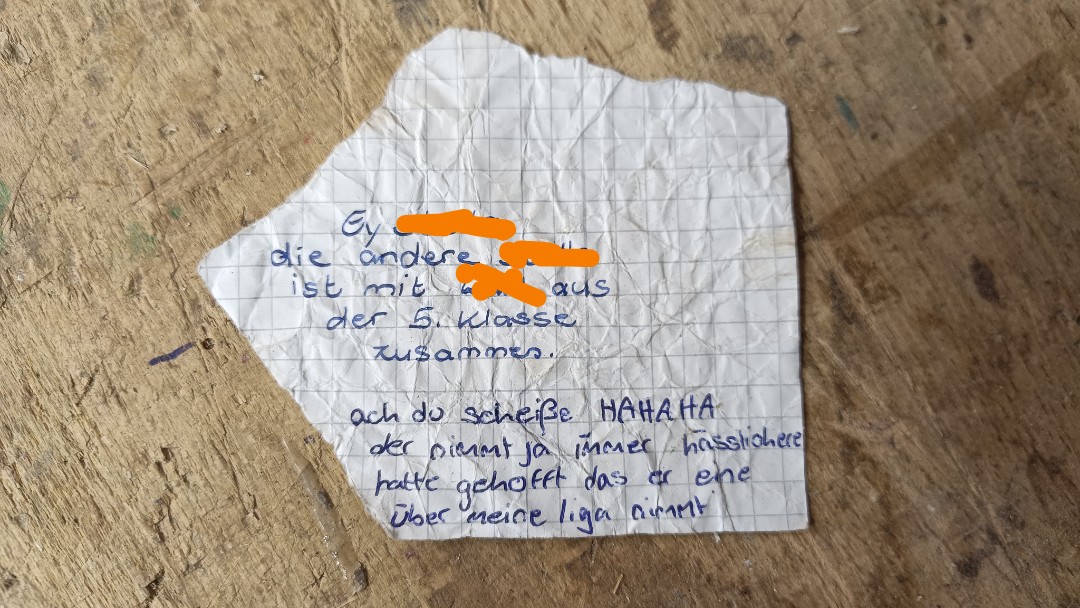 Ey
die andere
ist mit aus
der 5. Klasse
zusammen.
ach du scheiße HAHAHA
der nimmt ja immer hässlichere
hatte gehofft das er ene
über meine liga nimmt